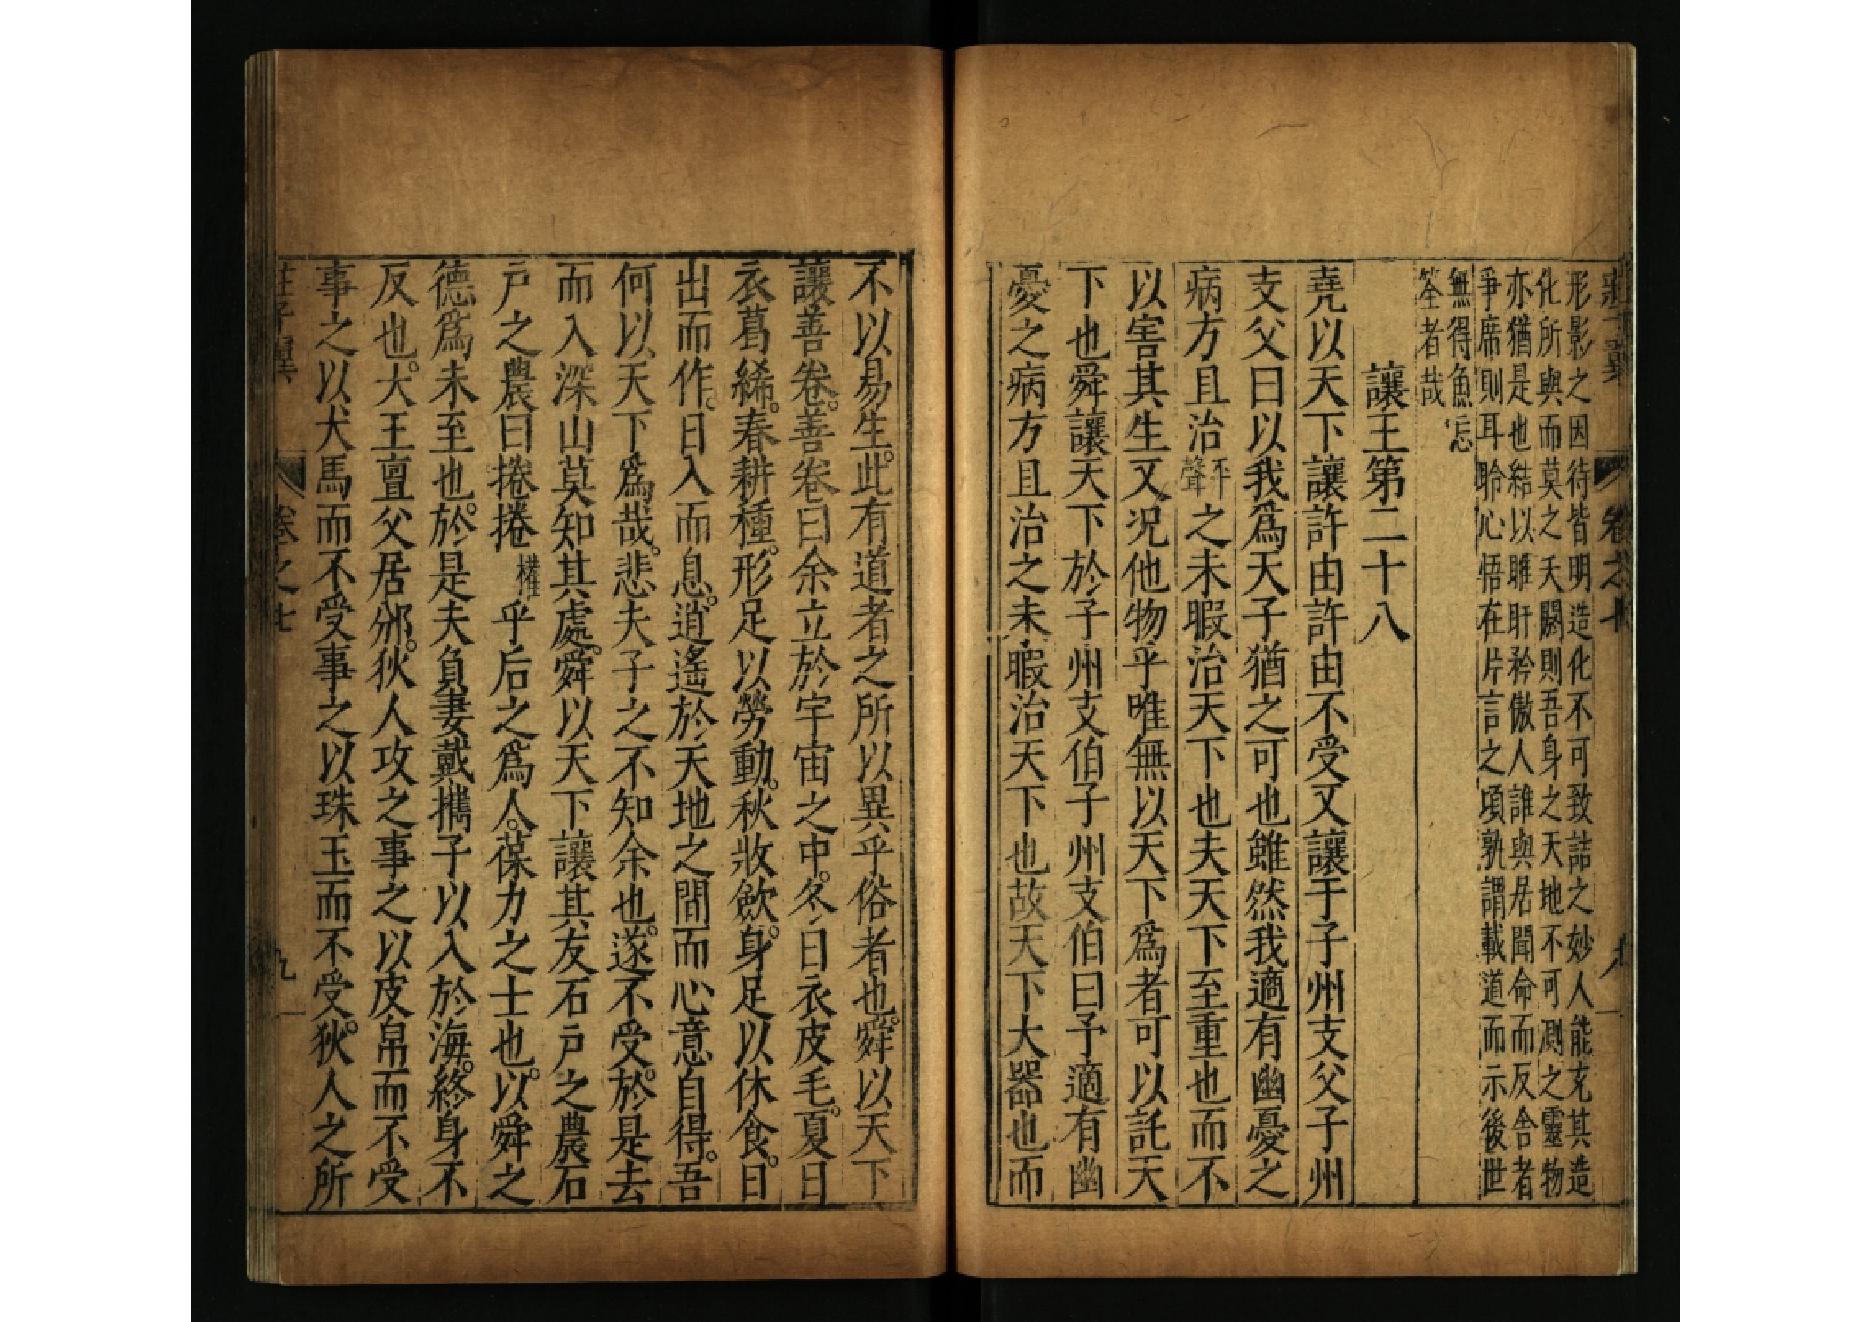 莊子翼 卷之七 八
形影之因待皆明造化不可致詰之妙人能克其造
化所與而莫之夭閼則吾身之天地不可測之靈物
亦猶是也結以睢盱矜傲人誰與居聞命而反舍者
爭席則耳聆心悟在片言之頃孰謂載道而示後世
無得魚忘
筌者哉
讓王第二十八
堯以天下讓許由許由不受又讓于子州支父子州
支父曰以我爲天子猶之可也雖然我適有幽憂之
病方且治平聲之未暇治天下也夫天下至重也而不
以害其生又況他物乎唯無以天下爲者可以託天
下也舜讓天下於子州支伯子州支伯曰予適有幽
憂之病方且治之未暇治天下也故天下大器也而
不以易生。此有道者之所以異乎俗者也。舜以天下
讓善卷。善卷曰余立於宇宙之中。冬日衣皮毛。夏日
衣葛絺。春耕種。形足以勞動。秋收斂。身足以休食。日
出而作。日入而息。逍遙於天地之間而心意自得。吾
何以天下爲哉。悲夫子之不知余也。遂不受。於是去
而入深山莫知其處。舜以天下讓其友石戶之農石
戶之農曰捲捲權乎后之爲人。葆力之士也。以舜之
德爲未至也。於是夫負妻戴攜子以入於海。終身不
反也。大王亶父居邠。狄人攻之事之以皮帛而不受
事之以犬馬而不受事之以珠玉而不受。狄人之所
莊子翼 卷之七 九